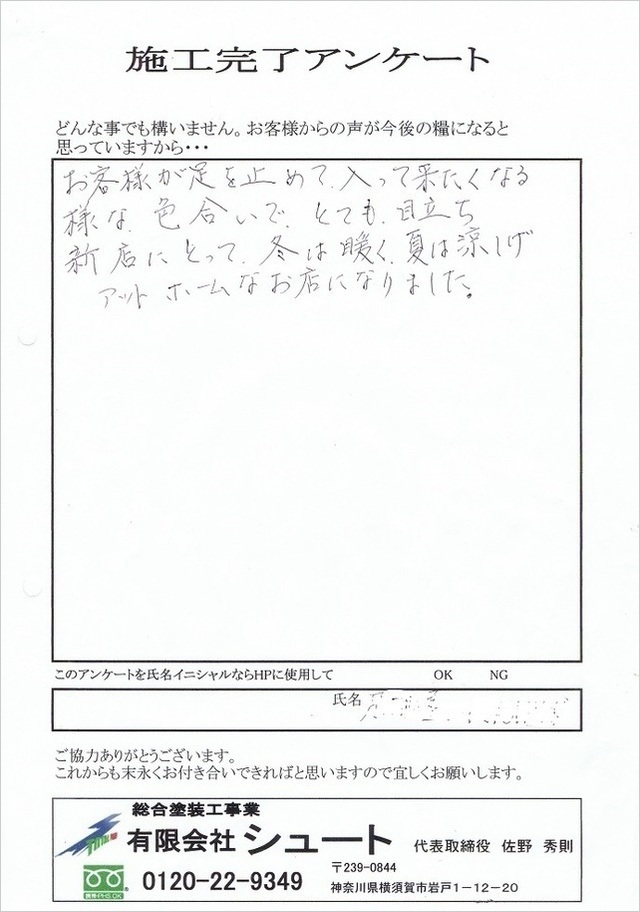 施工完了アンケート
どんな事でも構いません。お客様からの声が今後の糧になると
思っていますから・・・
お客様が足を止めて、入って来たくなる
様な、色合いで、とても、目立ち
新店にとって、冬は暖く、夏は涼しげ
アットホームなお店になりました。
このアンケートを氏名イニシャルならHPに使用して OK NG
氏名
ご協力ありがとうございます。
これからも末永くお付き合いできればと思いますので宜しくお願いします。
総合塗装工事業
有限会社 シュート 代表取締役 佐野 秀則
0120-22-9349
〒239-0844
神奈川県横須賀市岩戸1-12-20